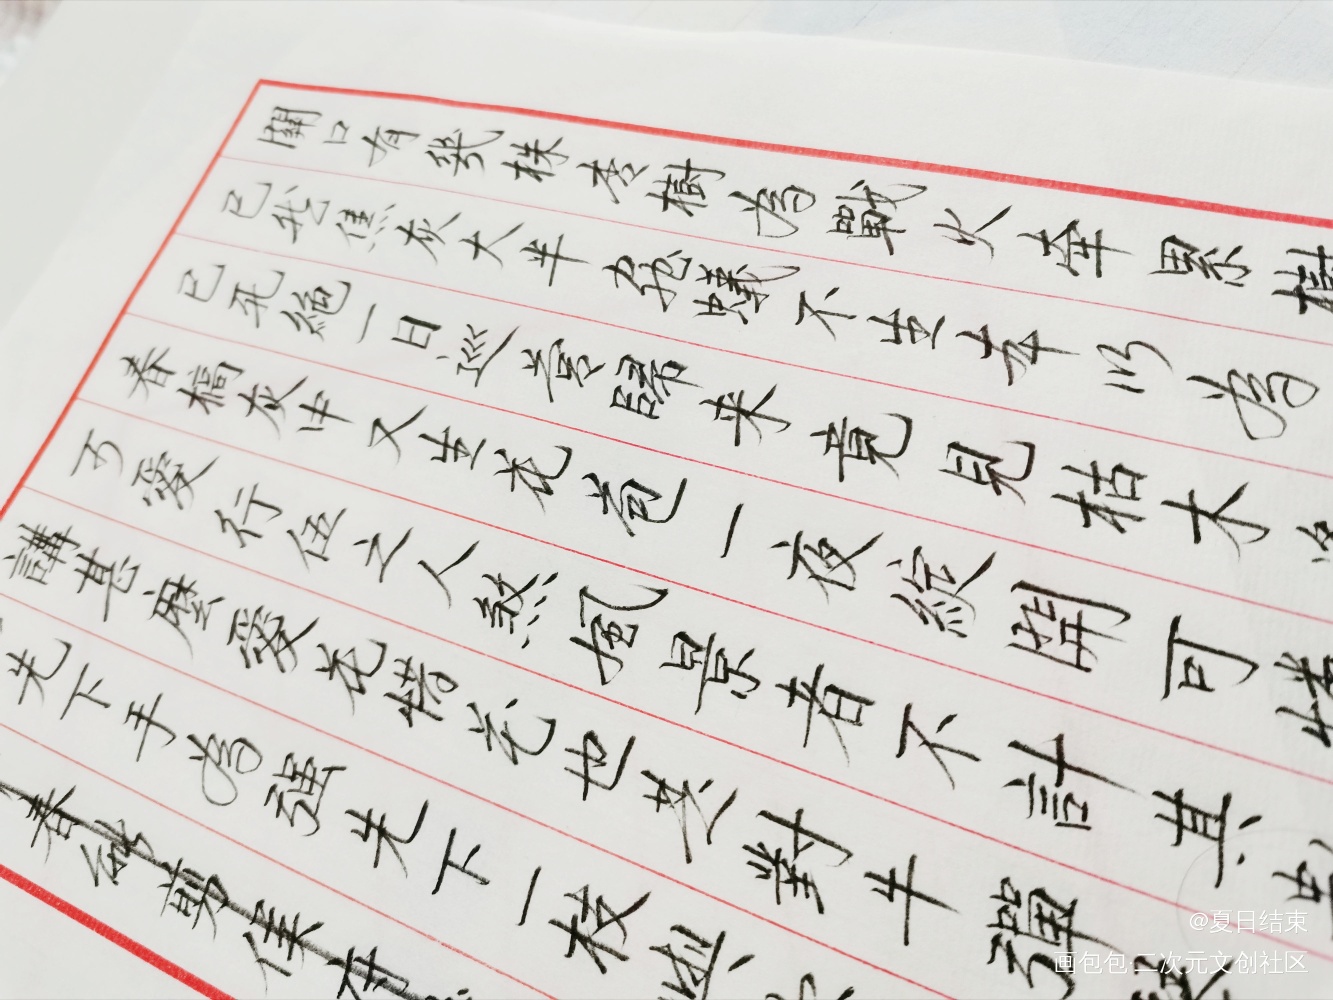 關口有幾株杏樹為戰火牽累樹
已成焦灰大半飛蟻不生本以為
已死絕一日巡營歸來竟見枯木
春槁灰中又生花苞一夜綻開可
愛行伍之人煞風景者不計其
講甚麼愛花惜花也是對牛彈
先下手為強先下一枝
春
@夏日结束
画包包·二次元文创社区